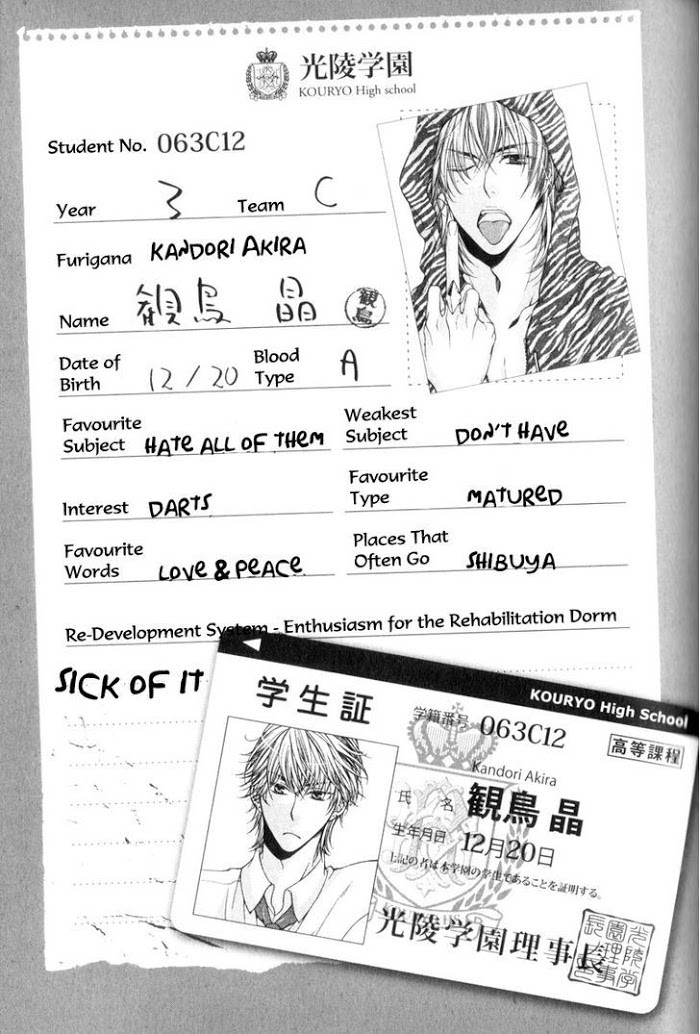 光陵学園
KOURYO High school
Student No. 063C12
Year 3 Team C
Furigana KANDORI AKIRA
Name 観鳥 晶 観鳥
Date of Birth 12/20 Blood Type A
Favourite Subject HATE ALL OF THEM Weakest Subject DON'T HAVE
Interest DARTS Favourite Type MATURED
Favourite Words LOVE & PEACE Places That Often Go SHIBUYA
Re-Development System - Enthusiasm for the Rehabilitation Dorm
SICK OF IT
KOURYO High School
学生証
学籍番号 063C12
高等課程
Kandori Akira
氏 名 観鳥 晶
生年月日 12月20日
上記の者は本学園の学生であることを証明する。
光陵学園理事長